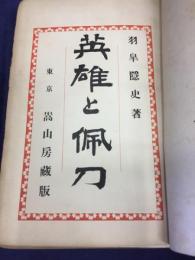 羽皐隠史著
英雄と佩刀
東京 嵩山房蔵版